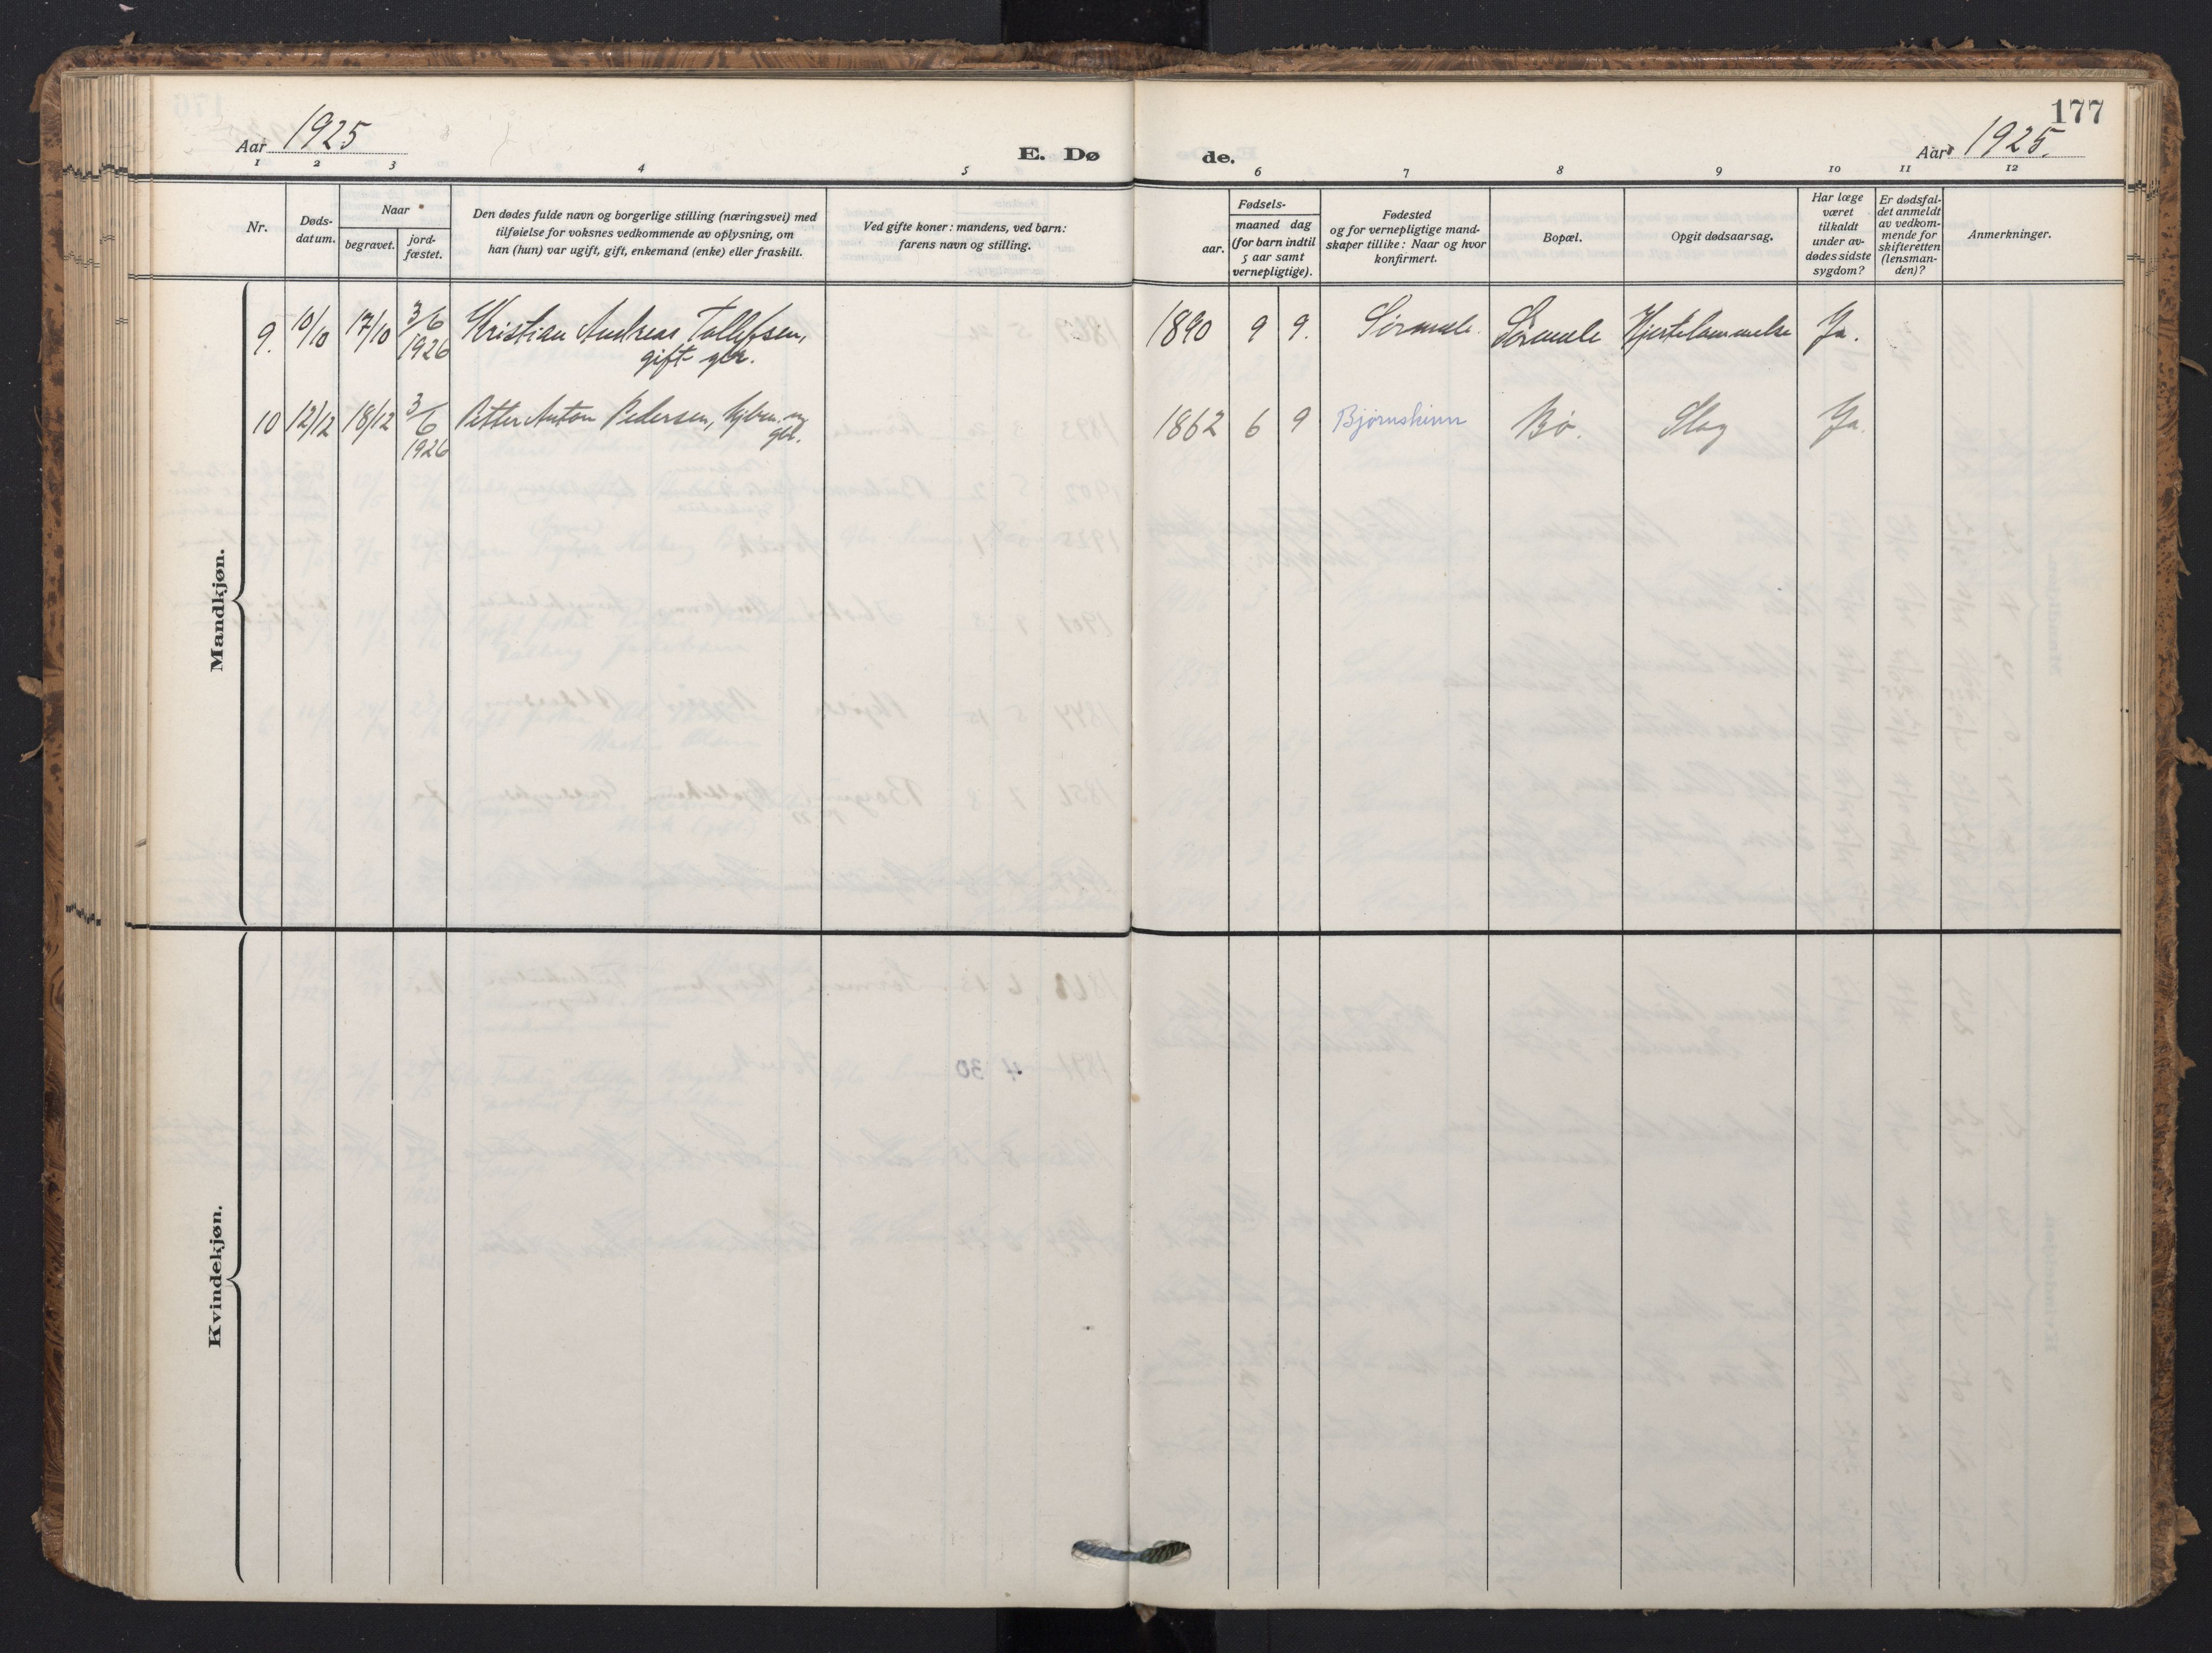 177
Aar 1925
E. Dø
de.
Aar 1925.
1 2 3 4 5 6 7 8 9 10 11 12
Nr.
Døds-
datum.
Naar
begravet.
jord-
fæstet.
Den dødes fulde navn og borgerlige stilling (næringsvei) med
tilføielse for voksnes vedkommende av oplysning, om
han (hun) var ugift, gift, enkemand (enke) eller fraskilt.
Ved gifte koner: mandens, ved barn:
farens navn og stilling.
Fødsels-
aar.
maaned dag
(for barn indtil
5 aar samt
vernepligtige).
Fødested
og for vernepligtige mand-
skaper tillike: Naar og hvor
konfirmert.
Bopæl.
Opgit dødsaarsag.
Har læge
været
tilkaldt
under av-
dødes sidste
sygdom?
Er dødsfal-
det anmeldt
av vedkom-
mende for
skifteretten
(lensman-
den)?
Anmerkninger.
Mandkjøn.
9. 10/10 17/10 3/6 1926 Kristian Andreas Tollefsen, 1890 9 9. Sørmele. Sørmele Hjertelammelse Ja.
gift gbr.
10 12/12 18/12 3/6 1926 Petter Anton Pedersen, 1862 6 9 Bjørnskinn Bø. Slag Ja.
Kvindekjøn.